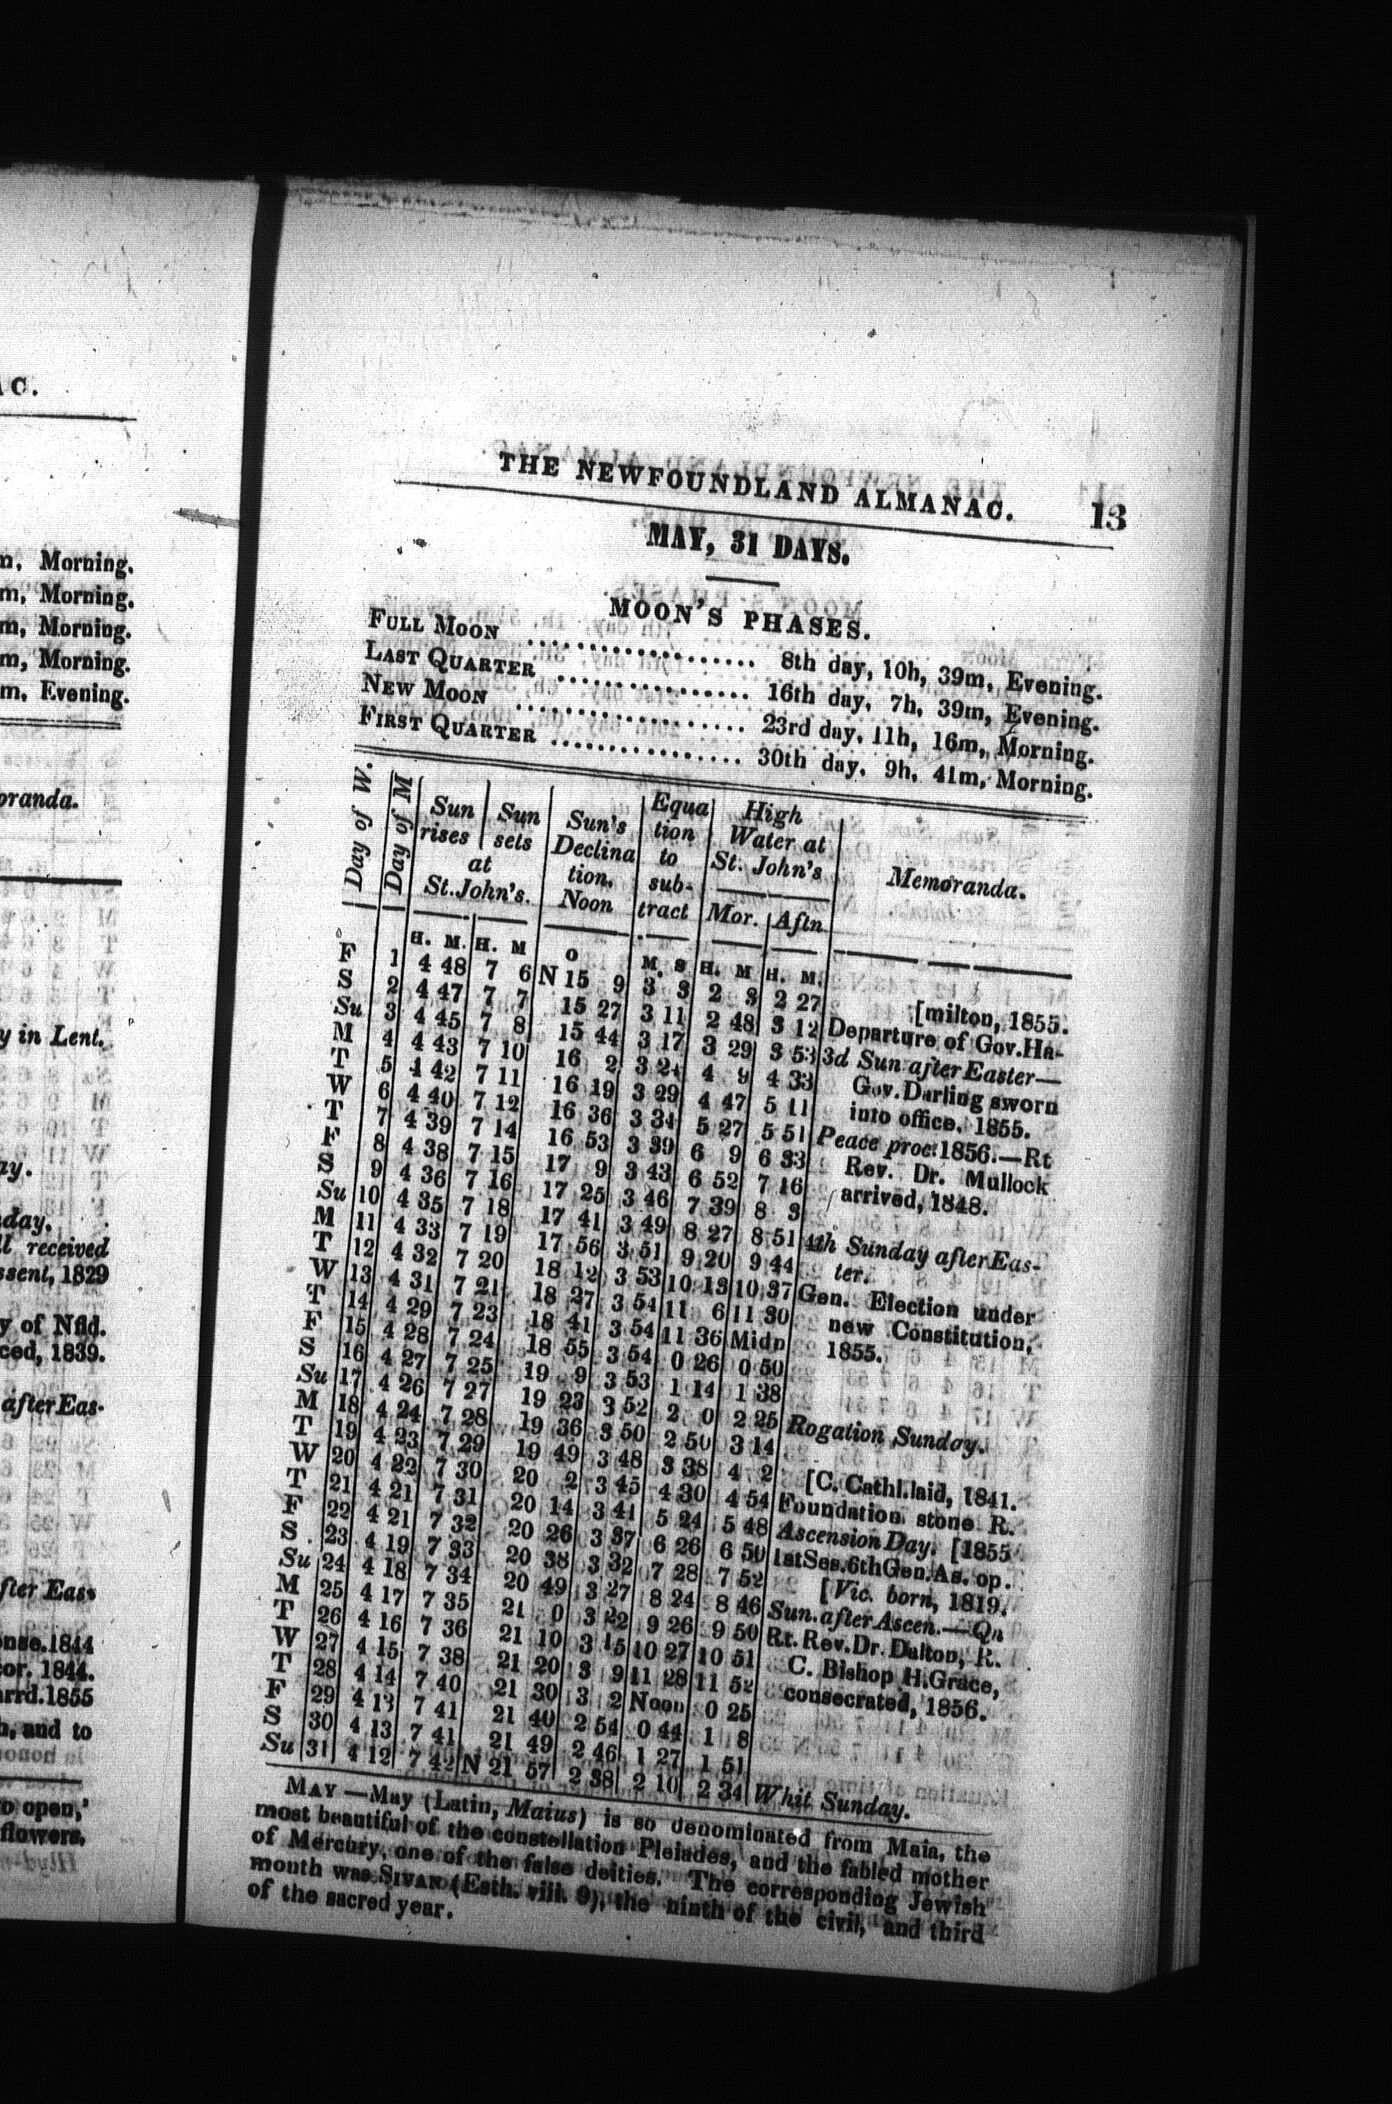 AC.
m, Morning.
m, Morning.
m, Morning.
m, Morning.
m, Evening.
oranda.
y in Lent.
ay.
day.
ll received
ssent, 1829
y of Nfld.
ced, 1839.
after Eas-
fter Eas-
onse. 1844
cor. 1844.
arrd. 1855
h, and to
o open,'
flowers.
THE NEWFOUNDLAND ALMANAC. 13
MAY, 31 DAYS.
MOON'S PHASES.
FULL MOON ................ 8th day, 10h, 39m, Evening.
LAST QUARTER ................ 16th day, 7h, 39m, Evening.
NEW MOON ................ 23rd day, 11h, 16m, Morning.
FIRST QUARTER ................ 30th day, 9h, 41m, Morning.
Day of W. Day of M Sun rises Sun sets at St. John's. Sun's Declina tion. Noon Equa tion to sub- tract High Water at St. John's Mor. Aftn Memoranda.
H. M. H. M O M. S H. M H. M.
F 1 4 48 7 6 N 15 9 3 3 2 3 2 27 [milton, 1855.
S 2 4 47 7 7 15 27 3 11 2 48 3 12 Departure of Gov. Ha-
Su 3 4 45 7 8 15 44 3 17 3 29 3 53 3d Sun after Easter—
M 4 4 43 7 10 16 2 3 24 4 9 4 33 Gov. Darling sworn
T 5 4 42 7 11 16 19 3 29 4 47 5 11 into office. 1855.
W 6 4 40 7 12 16 36 3 34 5 27 5 51 Peace proc: 1856.—Rt
T 7 4 39 7 14 16 53 3 39 6 9 6 33 Rev. Dr. Mullock
F 8 4 38 7 15 17 9 3 43 6 52 7 16 arrived, 1848.
S 9 4 36 7 16 17 25 3 46 7 39 8 3
Su 10 4 35 7 18 17 41 3 49 8 27 8 51 4th Sunday after Eas-
M 11 4 33 7 19 17 56 3 51 9 20 9 44 ter.
T 12 4 32 7 20 18 12 3 53 10 13 10 37 Gen. Election under
W 13 4 31 7 21 18 27 3 54 11 6 11 30 new Constitution,
T 14 4 29 7 23 18 41 3 54 11 36 Midn 1855.
F 15 4 28 7 24 18 55 3 54 0 26 0 50
S 16 4 27 7 25 19 9 3 53 1 14 1 38
Su 17 4 26 7 27 19 23 3 52 2 0 2 25 Rogation Sunday.
M 18 4 24 7 28 19 36 3 50 2 50 3 14
T 19 4 23 7 29 19 49 3 48 3 38 4 2 [C. Cathl. laid, 1841.
W 20 4 22 7 30 20 2 3 45 4 30 4 54 Foundation stone R.
T 21 4 21 7 31 20 14 3 41 5 24 5 48 Ascension Day. [1855
F 22 4 21 7 32 20 26 3 37 6 26 6 50 1st Ses. 6th Gen. As. op.
S 23 4 19 7 33 20 38 3 32 7 28 7 52 [Vic. born, 1819.
Su 24 4 18 7 34 20 49 3 27 8 24 8 46 Sun. after Ascen.—Qn
M 25 4 17 7 35 21 0 3 22 9 26 9 50 Rt. Rev. Dr. Dalton, R.
T 26 4 16 7 36 21 10 3 15 10 27 10 51 C. Bishop H. Grace,
W 27 4 15 7 38 21 20 3 9 11 28 11 52 consecrated, 1856.
T 28 4 14 7 40 21 30 3 2 Noon 0 25
F 29 4 13 7 41 21 40 2 54 0 44 1 8
S 30 4 13 7 41 21 49 2 46 1 27 1 51
Su 31 4 12 7 42 N 21 57 2 38 2 10 2 34 Whit Sunday.
MAY —May (Latin, Maius) is so denominated from Maia, the
most beautiful of the constellation Pleiades, and the fabled mother
of Mercury, one of the false deities. The corresponding Jewish
month was SIVAN (Esth. viii. 9), the ninth of the civil, and third
of the sacred year.